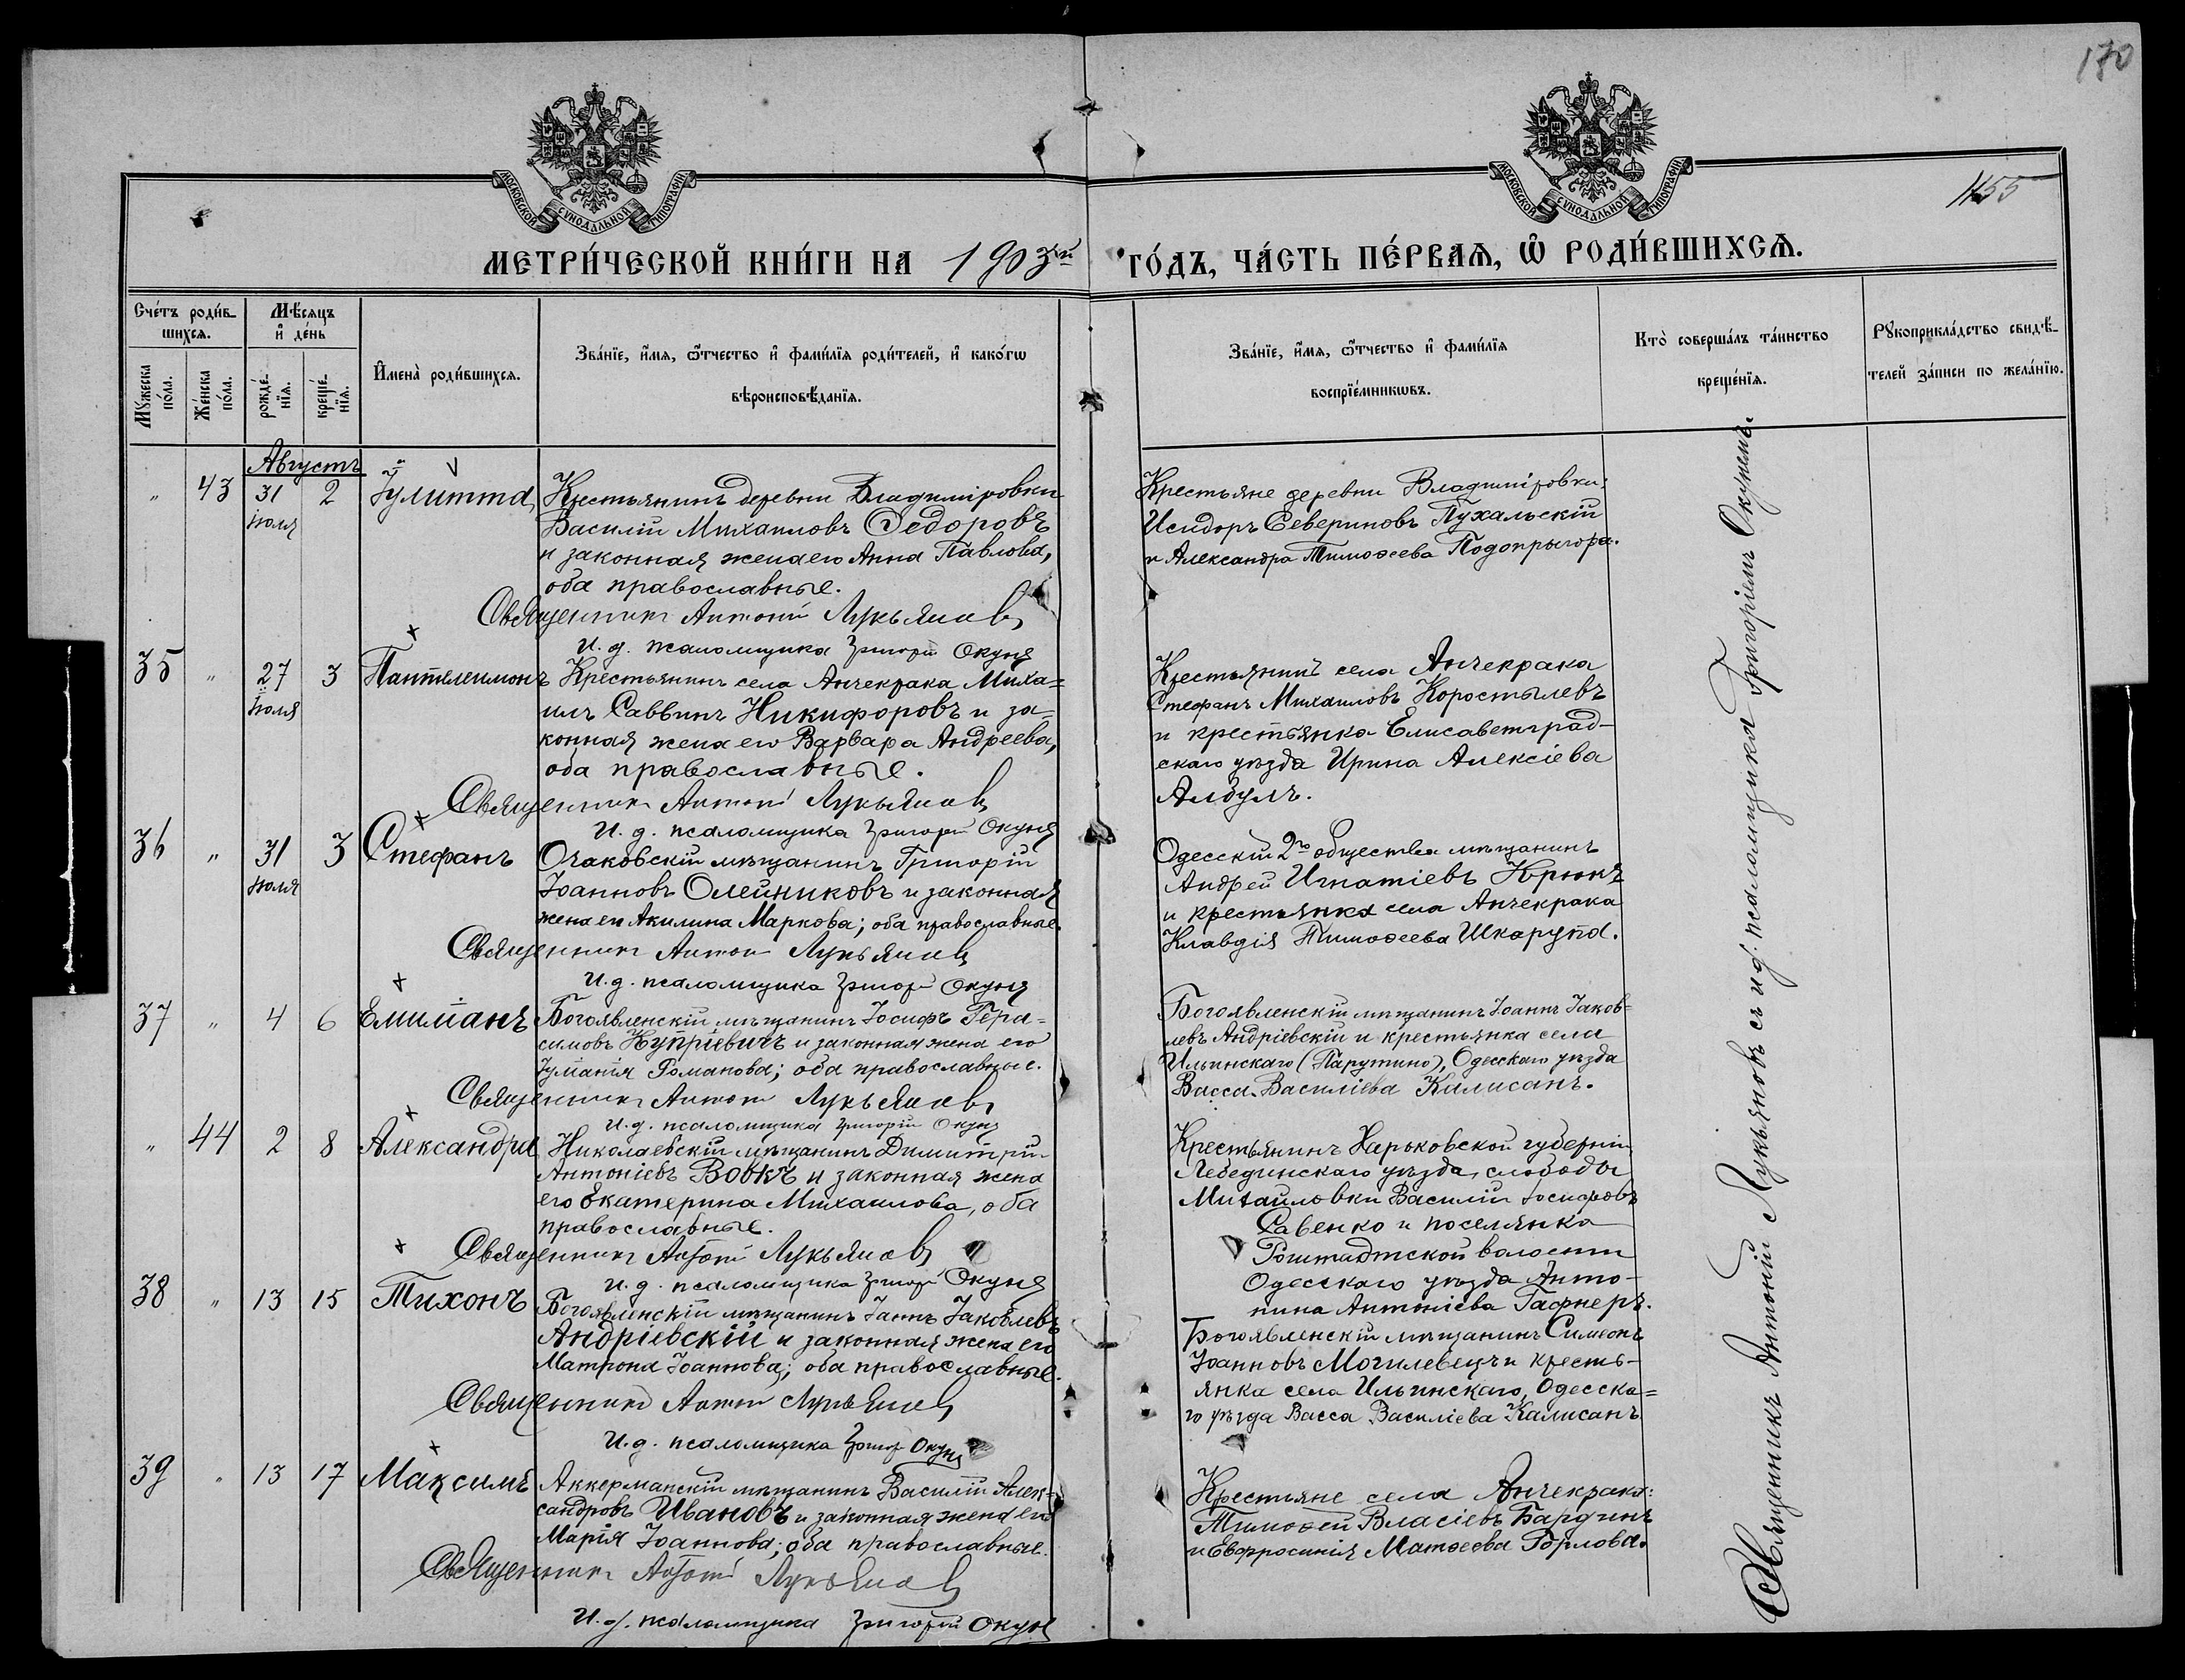 170
МОСКОВСКОЙ СѴНОДАЛЬНОЙ ТИПОГРАФІИ
МОСКОВСКОЙ СѴНОДАЛЬНОЙ ТИПОГРАФІИ
1155
МЕТРИ́ЧЕСКОЙ КНИ́ГИ НА 1903й ГО́ДЪ, ЧА́СТЬ ПЕ́РВАѦ, Ѡ҆ РОДИ́ВШИХСѦ.
Сче́тъ роди́в-
шихсѧ.
Мꙋ́жеска по́ла.
Же́нска по́ла.
Мѣ́сѧцъ
и҆ де́нь
рожде́-
нїѧ.
креще́-
нїѧ.
И҆мена̀ роди́вшихсѧ.
Зва́нїе, и҆́мѧ, ѻ҆́тчество и҆ фами́лїѧ роди́телей, и҆ како́гѡ
вѣроисповѣ́данїѧ.
Зва́нїе, и҆́мѧ, ѻ҆́тчество и҆ фами́лїѧ
воспрїе́мникѡвъ.
Кто̀ соверша́лъ та́инство
креще́нїѧ.
Рꙋкоприкла́дство свидѣ́-
телей за́писи по жела́нїю.
Августъ
" 43 31 Іюля 2 Іулитта
Крестьянинъ деревни Владиміровки
Василій Михаиловъ Ѳедоровъ
и законная жена его Анна Павлова,
оба православные.
Священникъ Антоній Лукьяновъ
И. д. псаломщика Григорій Окунь
Крестьяне деревни Владиміровки:
Исидоръ Севериновъ Пухальскій
и Александра Тимоѳеева Подопрыгора.
35 " 27 Іюля 3 Пантелеимонъ
Крестьянинъ села Анчекрака Миха=
илъ Саввинъ Никифоровъ и за=
конная жена его Варвара Андреева,
оба православные.
Священникъ Антоній Лукьяновъ
И. д. псаломщика Григорій Окунь
Крестьянинъ села Анчекрака
Стефанъ Михаиловъ Коростылевъ
и крестьянка Елисаветград-
скаго уѣзда Ирина Алексіева
Албулъ.
36 " 31 Іюля 3 Стефанъ
Очаковскій мѣщанинъ Григорій
Іоанновъ Олейниковъ и законная
жена его Акилина Маркова; оба православные.
Священникъ Антоній Лукьяновъ
И. д. псаломщика Григорій Окунь
Одесскій 2го общества мѣщанинъ
Андрей Игнатіевъ Крюкъ
и крестьянка села Анчекрака
Клавдія Тимоѳеева Шкарупа.
37 " 4 6 Емиліанъ
Богоявленскій мѣщанинъ Іосифъ Гера=
симовъ Купріевичъ и законная жена его
Іуліанія Романова; оба православные.
Священникъ Антоній Лукьяновъ
И. д. псаломщика Григорій Окунь
Богоявленскій мѣщанинъ Іоаннъ Іаков=
левъ Андріевскій и крестьянка села
Ильинскаго (Парутино), Одесскаго уѣзда
Васса Василіева Калисанъ.
" 44 2 8 Александра
Николаевскій мѣщанинъ Димитрій
Антоніевъ Вовкъ и законная жена
его Екатерина Михаилова, оба
православные.
Священникъ Антоній Лукьяновъ
И. д. псаломщика Григорій Окунь
Крестьянинъ Харьковской губерніи
Лебединскаго уѣзда, слободы
Михайловки Василій Іосифовъ
Савенко и поселянка
Роштадтской волости
Одесскаго уѣзда Анто-
нина Антоніева Гафнеръ.
38 " 13 15 Тихонъ
Богоявленскій мѣщанинъ Іоаннъ Іаковлевъ
Андріевскій и законная жена его
Матрона Іоаннова; оба православные.
Священникъ Антоній Лукьяновъ
И. д. псаломщика Григорій Окунь
Богоявленскій мѣщанинъ Симеонъ
Іоанновъ Могилевецъ и кресть-
янка села Ильинскаго, Одесска=
го уѣзда Васса Василіева Калисанъ
39 " 13 17 Максимъ
Аккерманскій мѣщанинъ Василій Алек-
сандровъ Ивановъ и законная жена его
Марія Іоаннова; оба православные.
Священникъ Антоній Лукьяновъ
И. д. псаломщика Григорій Окунь
Крестьяне села Анчекрака:
Тимоѳей Власіевъ Бардинъ
и Евфросинія Матѳеева Горлова.
Священникъ Антоній Лукьяновъ съ и. д. псаломщика Григоріемъ Окунемъ.